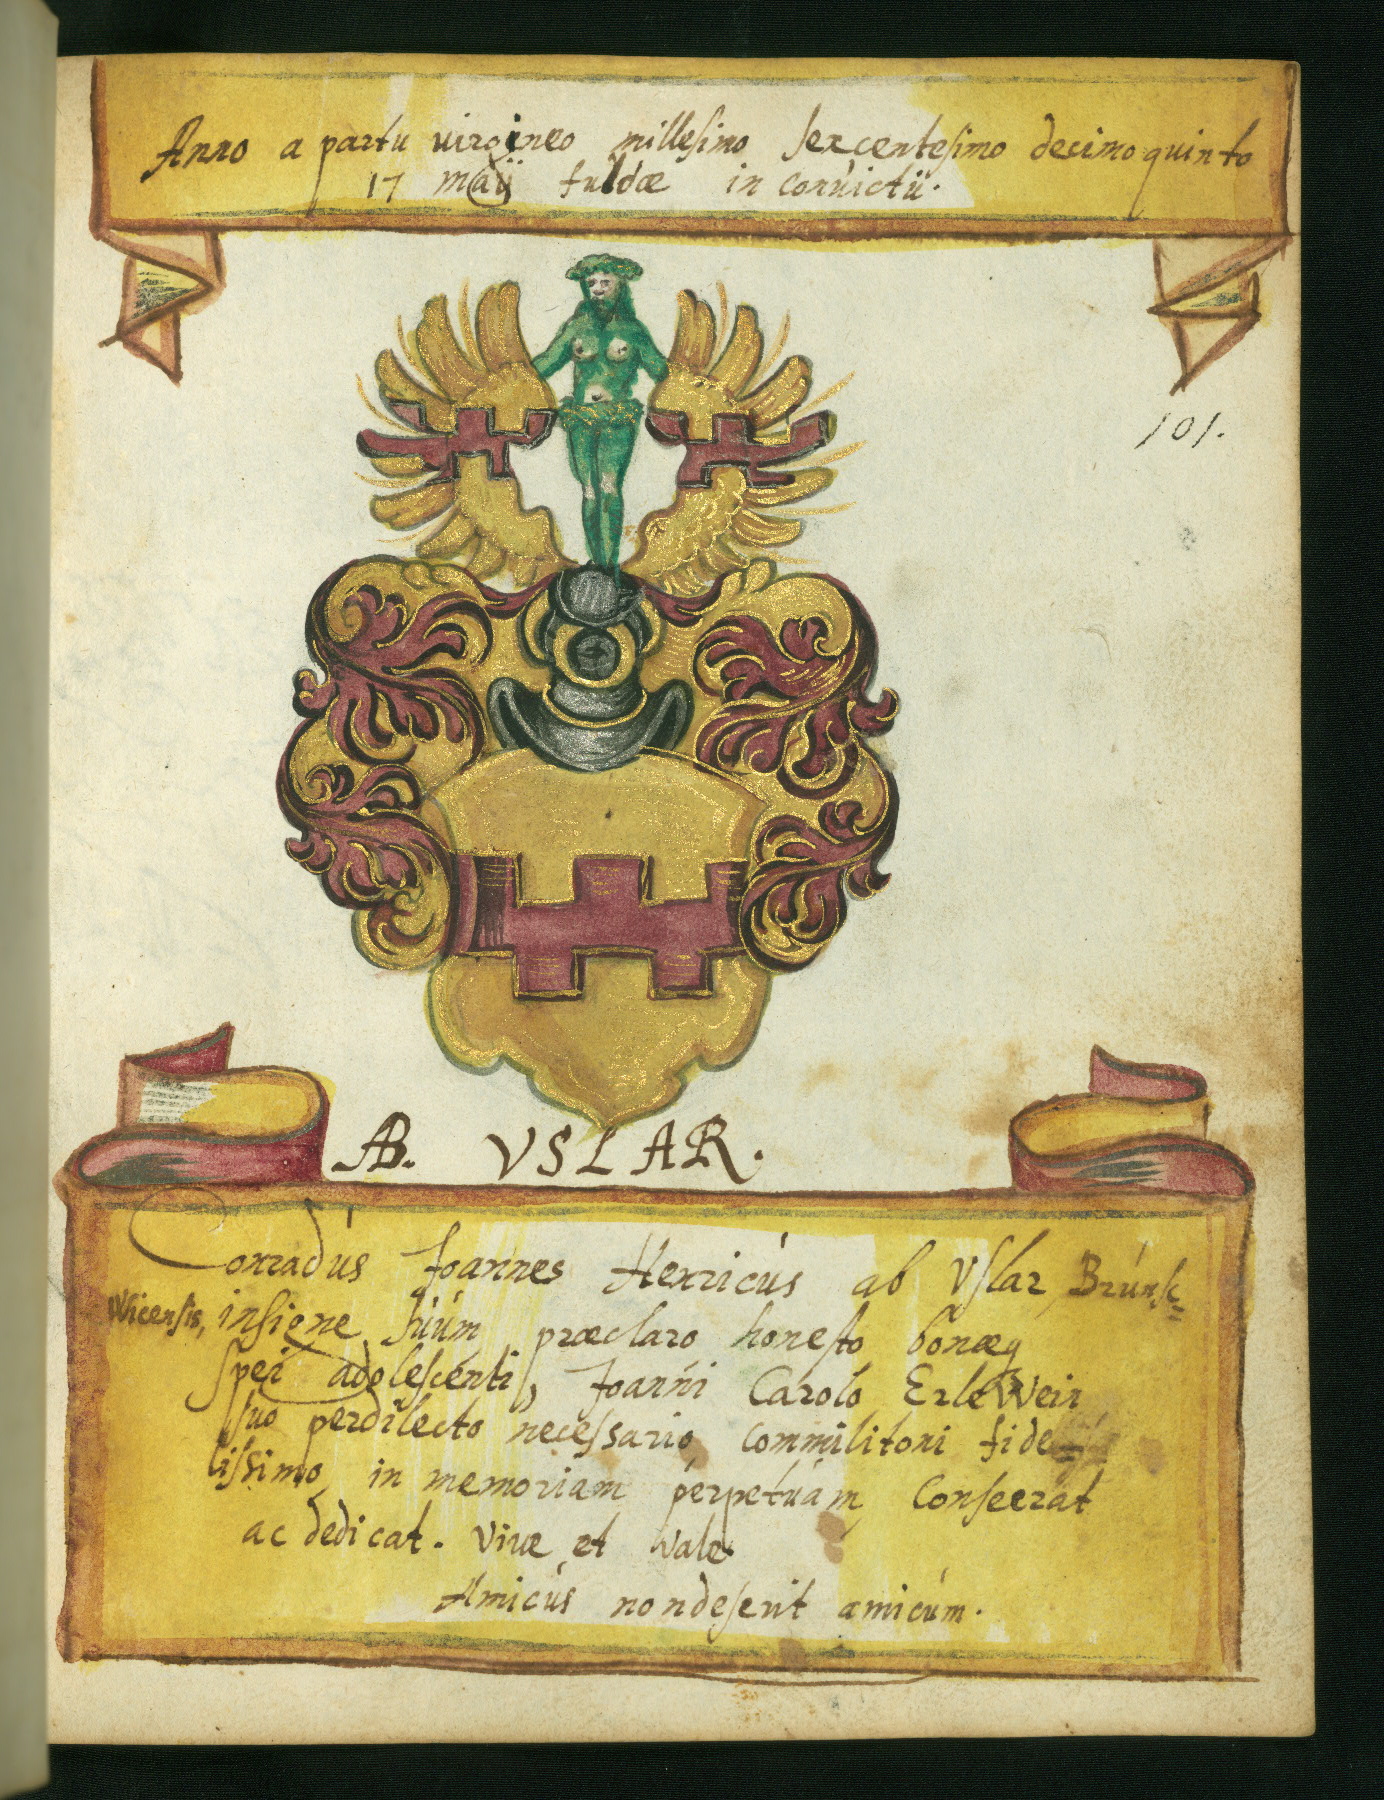 Anno a partu virgineo millesimo sexcentesimo decimo quinto
17 maÿ fuldæ in convictú.
101.
AB. VSLAR.
Conradús Joannes Henricús ab Uslar, Brúnsc=
Wicensis, insigne súúm præclaro honesto bonæq
spei adolescenti, Joanni Carolo ErleWein
suo perdilecto necessario commilitoni fide=
lissimo in memoriam perpetúam Consecrat
ac dedicat. Vive et vale
Amicús non deserit amicúm.